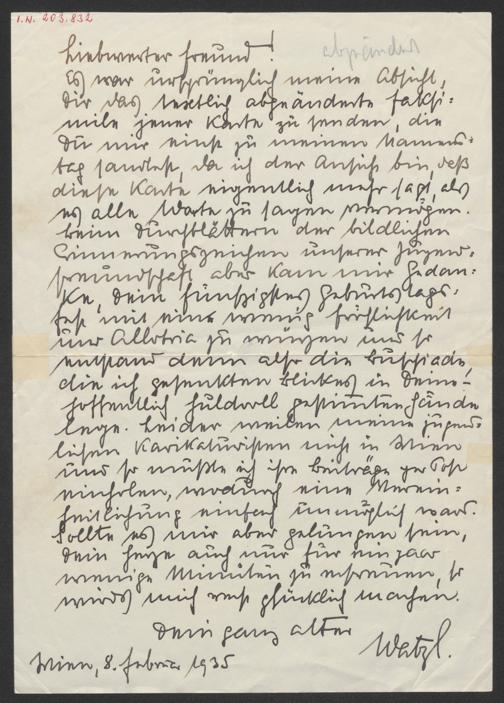 I.N. 203.832
Liebwerter Freund!
Es war ursprünglich meine Absicht,
Dir das textlich abgeänderte Faksi=
mile jener Karte zu senden, die
Du mir einst zu meinem Namens=
tag sandtest, da ich der Ansicht bin, daß
diese Karte eigentlich mehr sagt, als
es alle Worte zu sagen vermögen.
Beim Durchblättern der bildlichen
Erinnerungszeichen unserer Jugend=
freundschaft aber kam mir Gedan=
ke, Dein fünfzigstes Geburtstags=
fest mit ein wenig Fröhlichkeit
und Allotria zu würzen und so
entstand denn also die Buschiade,
die ich gesenkten Blickes in Deine –
hoffentlich huldvoll gestimmten Hände
lege. Leider weilen meine jugend=
lichen Karikaturisten nicht in Wien
und so mußte ich ihre Beiträge per Post
einholen, wodurch eine Verein=
heitlichung einfach unmöglich ward.
Sollte es mir aber gelungen sein,
Dein Herze auch nur für ein paar
wenige Minuten zu erfreuen, so
würds mich recht glücklich machen.
Dein ganz alter
Watzl.
Wien, 8. Februar 1935